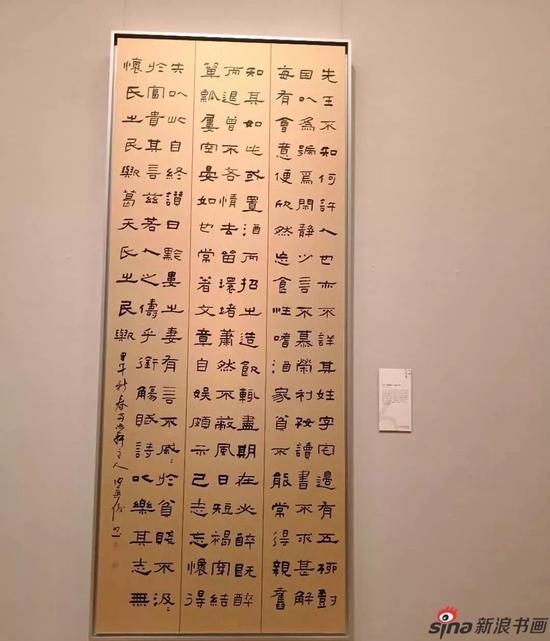 先生不知何許人也亦不詳其姓字宅邊有五柳樹
因以為號焉閑靜少言不慕榮利好讀書不求甚解
每有會意便欣然忘食性嗜酒家貧不能常得親舊
知其如此或置酒而招之造飲輒盡期在必醉既醉
而退曾不吝情去留環堵蕭然不蔽風日短褐穿結
簞瓢屢空晏如也常著文章自娛頗示己志忘懷得
失以此自終讚曰黔婁之妻有言不戚〻於貧賤不汲〻
於富貴其言茲若人之儔乎銜觴賦詩以樂其志無
懷氏之民歟葛天氏之民歟
甲午新春
sina新浪书画